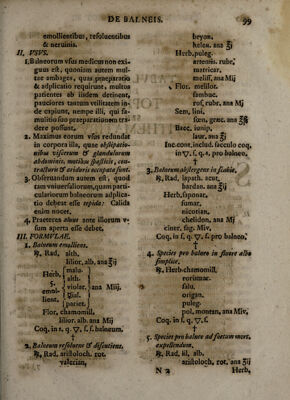 DE BALNEIS. 99
emollientibus, resoluentibus
& neruinis.
II. VSVS.
1. Balneorum vsus medicus non exi-
guus est, quoniam autem mul-
tor ambages, quas præparatio
& adplicatio requirunt, multos
patientes ab iisdem detinent,
pauciores tantum vtilitatem in-
de capiunt, nempe illi, qui fa-
mulitio suo præparationem tra-
dere possunt.
2. Maximus eorum vsus redundat
in corpora illa, quæ obstipatio-
nibus viscerum & glandularum
abdominis, motibus spasticis, con-
tracturis & ariduris occupata sunt.
3. Obseruandum autem est, quod
tam vniuersaliorum, quam parti-
culariorum balneorum adplica-
tio debeat esse tepida: Calida
enim nocet.
4. Præterea alvus ante illorum v-
sum aperta esse debet.
III. FORMVLAE.
1. Balneum emolliens.
℞, Rad, alth.
lilior, alb, ana ℥ij
Herb. 5. emol-lient. malu. alth. violar. ana Miij. pariet.
Flor, chamomill,
lilior. alb. ana Mij
Coq, in s. q. ▽. f. s. balneum.
†
2. Balneum resoluens & discutiens.
℞, Rad, aristoloch. rot.
valerian,
bryon.
helen. ana ℥ij
Herb, puleg.
artemis. rubr,
matricar.
meliss, ana Mij
Flor. melilot.
sambuc.
ros, rubr, ana Mj
Sem, lini,
fœn, græc. ana ℥ß
Bacc. iunip,
laur, ana ℥j
Inc. cont. includ. sacculo coq,
in ▽. f. q. s. pro balneo.
†
3. Balneum abstergens in scabie.
℞, Rad, lapath. acut,
bardan. ana ℥ij
Herb, saponar.
fumar,
nicotian,
chelidon, ana Mj
ciner, fag. Miv.
Coq. in f. q. ▽. f. pro balneo.
†
4. Species pro balneo in fluore albo
simplice.
℞, Herb, chamomill,
rorismar.
salu.
origan.
puleg.
pol, montan, ana Miv.
Coq, in f. q, ▽. f.
†
5. Species pro balneo ad fœtum mort.
expellendum.
℞, Rad, lil, alb.
aristoloch, rot, ana ℥ij
N 2 Herb,